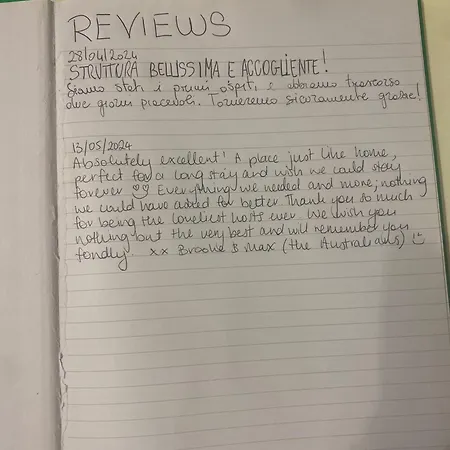 REVIEWS
28/04/2024
STRUTTURA BELLISSIMA E ACCOGLIENTE!
Siamo stati i primi ospiti e abbiamo trascorso
due giorni piacevoli. Torneremo sicuramente grazie!
13/05/2024
Absolutely excellent! A place just like home,
perfect for a long stay and wish we could stay
forever ♡♡ Everything we needed and more; nothing
we could have asked for better Thank you so much
for being the loveliest hosts ever We wish you
nothing but the very best and will remember you
fondly. xx Brooke & Max (the Australians) ☺